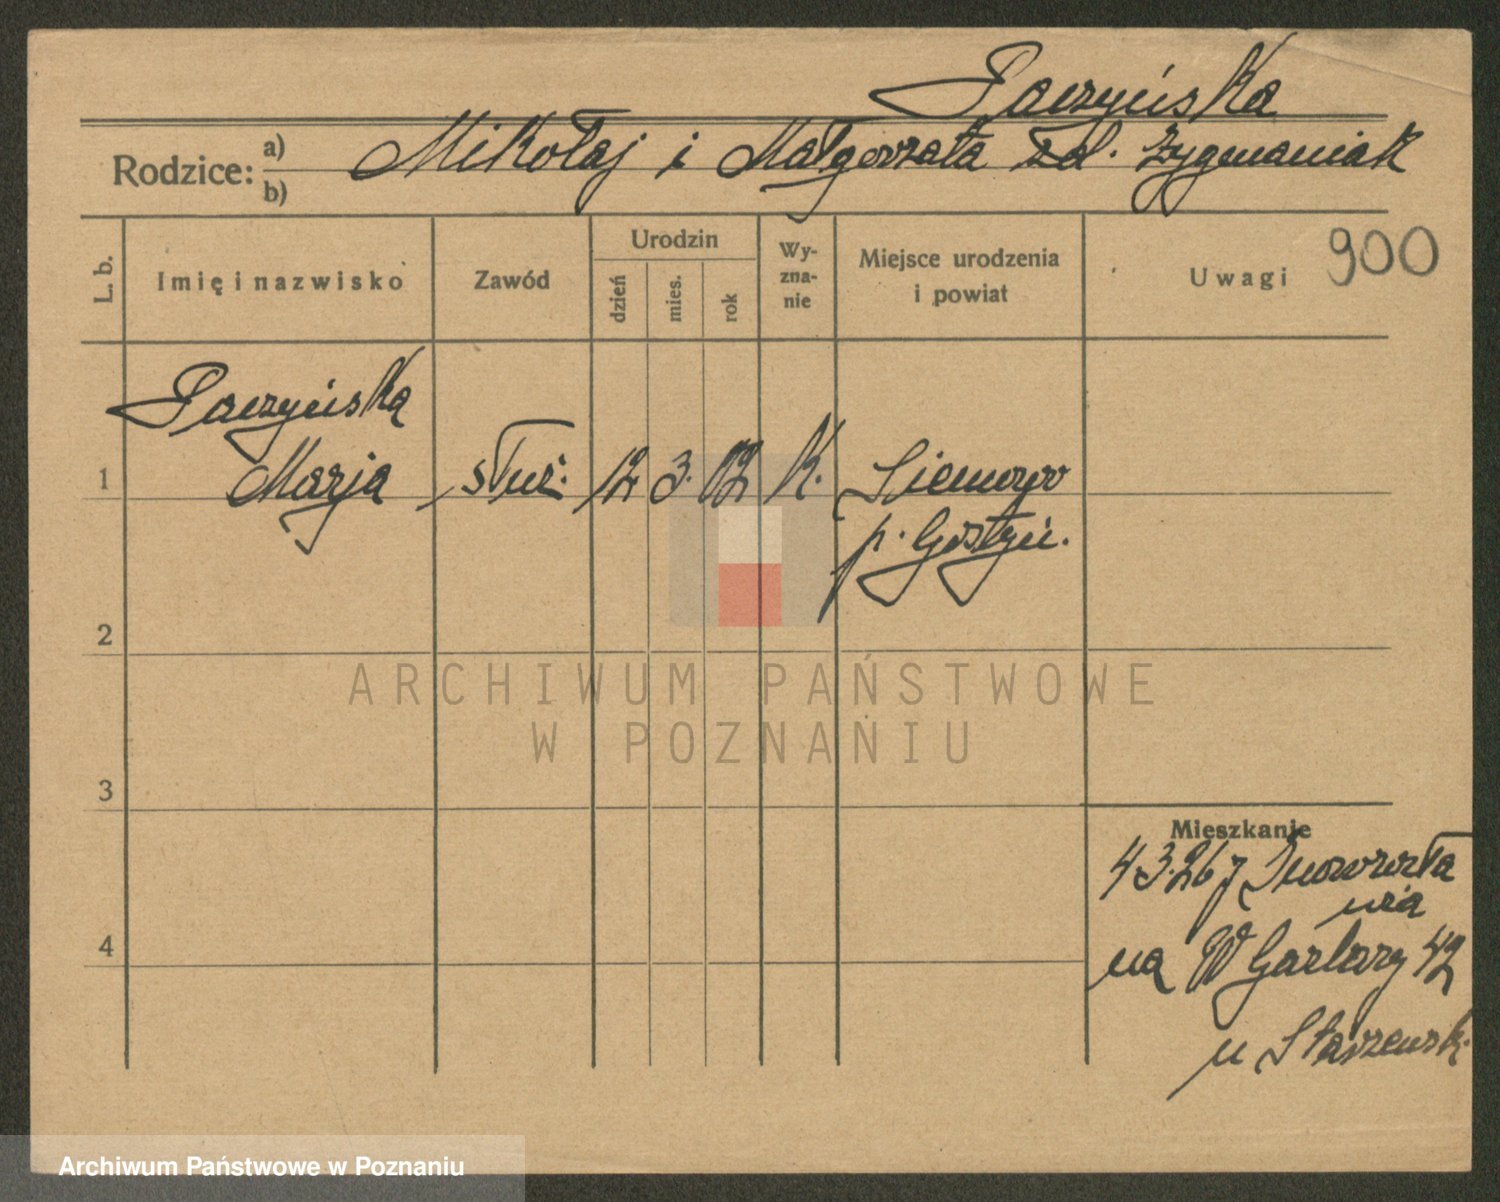 Paczyńska
Rodzice: a) b) Mikołaj i Małgorzata zd. Zygmaniak
L. b.
Imię i nazwisko
Zawód
Urodzin
dzień
mies.
rok
Wy-
zna-
nie
Miejsce urodzenia
i powiat
Uwagi 900
Paczyńska
1 Marja służ. 12. 3. 02 K. Siemowo
p. Gostyń.
2
3
4
Mieszkanie
4.3.26 z Inowrocła
wia
na W Garbary 42
u Staszewsk.
ARCHIWUM PAŃSTWOWE
W POZNANIU
Archiwum Państwowe w Poznaniu